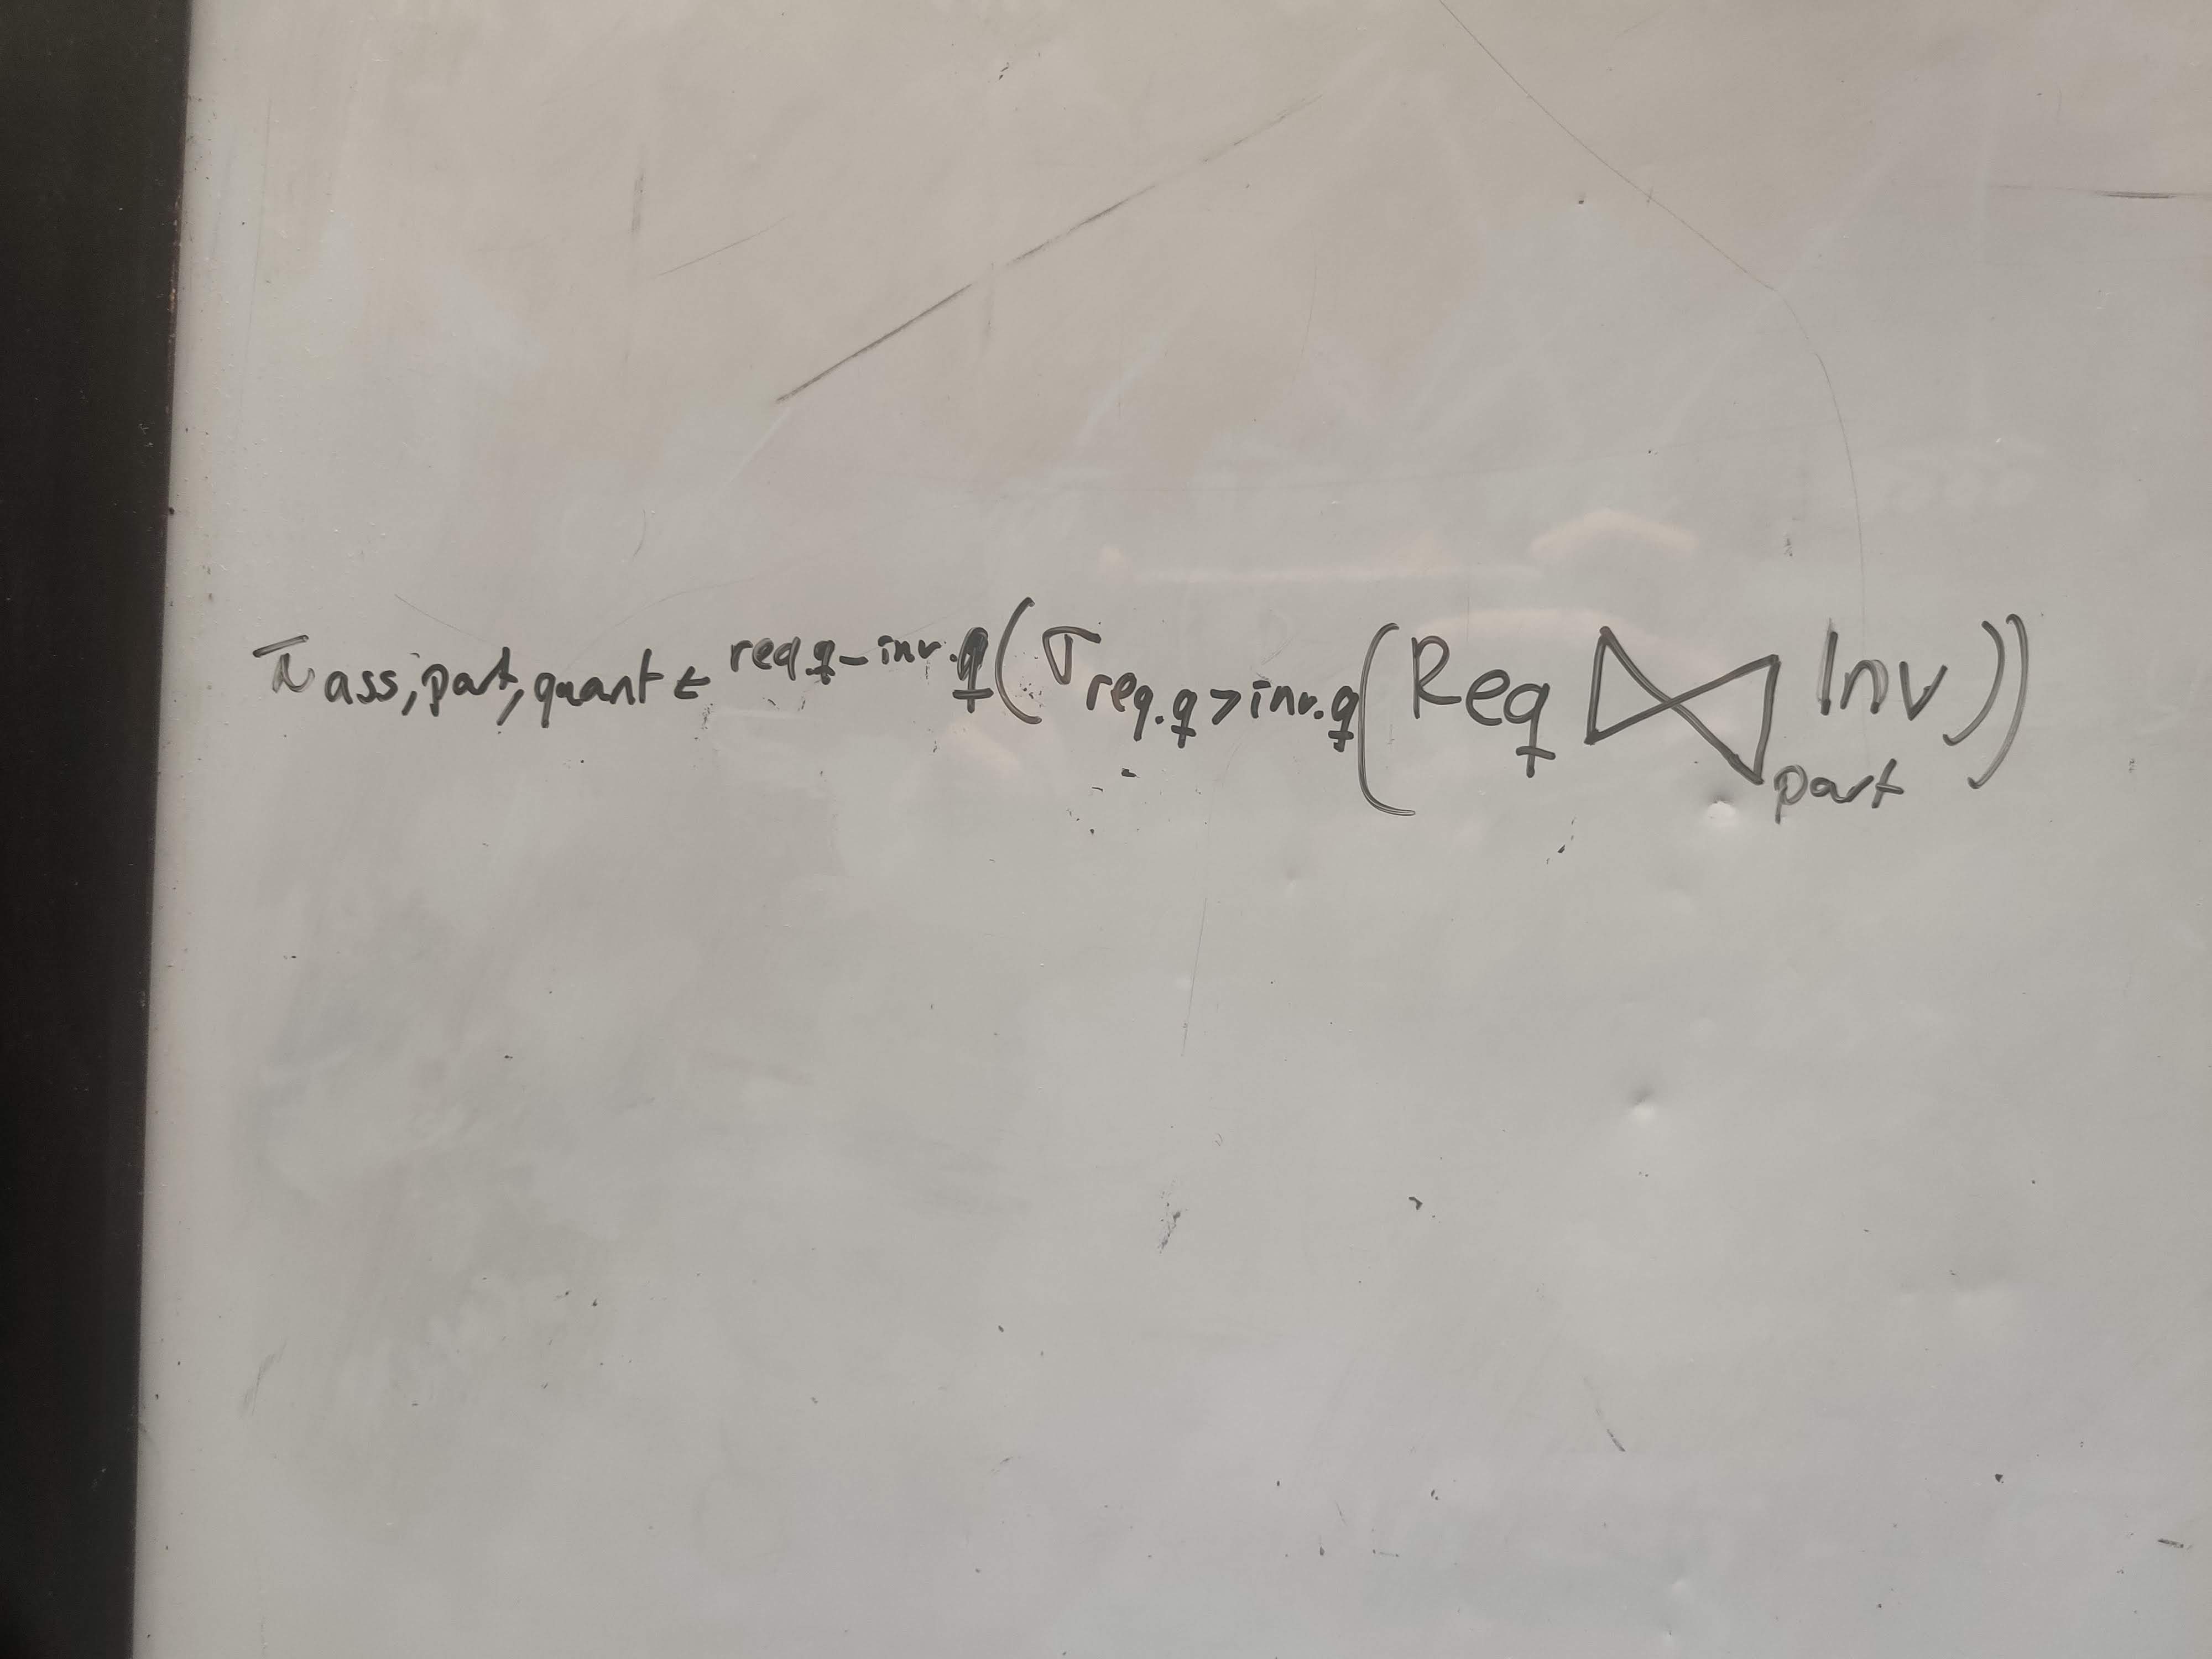 π ass, part, quant ← req.q - inv.q (σ req.q > inv.q (Req ⋈ part Inv))